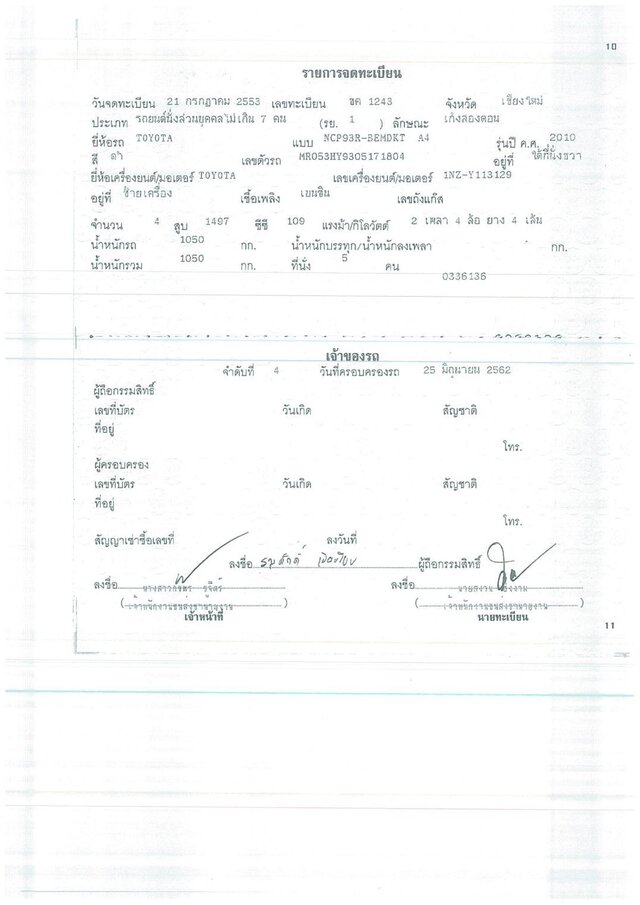 10
รายการจดทะเบียน
วันจดทะเบียน 21 กรกฎาคม 2553 เลขทะเบียน ขค 1243 จังหวัด เชียงใหม่
ประเภท รถยนต์นั่งส่วนบุคคลไม่เกิน 7 คน (รย. 1 ) ลักษณะ เก๋งสองตอน
ยี่ห้อรถ TOYOTA แบบ NCP93R-BEMDKT A4 รุ่นปี ค.ศ. 2010
สี ดำ เลขตัวรถ MR053HY9305171804 อยู่ที่ ใต้ที่นั่งขวา
ยี่ห้อเครื่องยนต์/มอเตอร์ TOYOTA เลขเครื่องยนต์/มอเตอร์ 1NZ-Y113129
อยู่ที่ ซ้ายเครื่อง เชื้อเพลิง เบนซิน เลขถังแก๊ส
จำนวน 4 สูบ 1497 ซีซี 109 แรงม้า/กิโลวัตต์ 2 เพลา 4 ล้อ ยาง 4 เส้น
น้ำหนักรถ 1050 กก. น้ำหนักบรรทุก/น้ำหนักลงเพลา กก.
น้ำหนักรวม 1050 กก. ที่นั่ง 5 คน
0336136
เจ้าของรถ
ลำดับที่ 4 วันที่ครอบครองรถ 25 มิถุนายน 2562
ผู้ถือกรรมสิทธิ์
เลขที่บัตร วันเกิด สัญชาติ
ที่อยู่
โทร.
ผู้ครอบครอง
เลขที่บัตร วันเกิด สัญชาติ
ที่อยู่
โทร.
สัญญาเช่าซื้อเลขที่ ลงวันที่
ลงชื่อ ผู้ถือกรรมสิทธิ์
ลงชื่อ ลงชื่อ
(เจ้าพนักงานขนส่งชำนาญงาน) (เจ้าพนักงานขนส่งชำนาญงาน)
เจ้าหน้าที่ นายทะเบียน
11